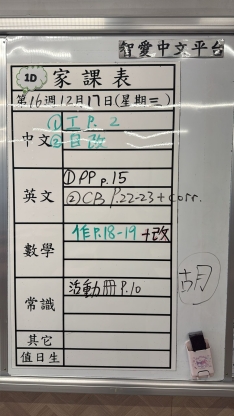 智愛中文平台
1D 家課表
第16週12月17日(星期三)
中文 ①工 P. 2
②日改
英文 ①PP p.15
②CB P.22-23 + corr.
數學 作P.18-19 +改
常識 活動冊 P.10
其它
值日生
胡